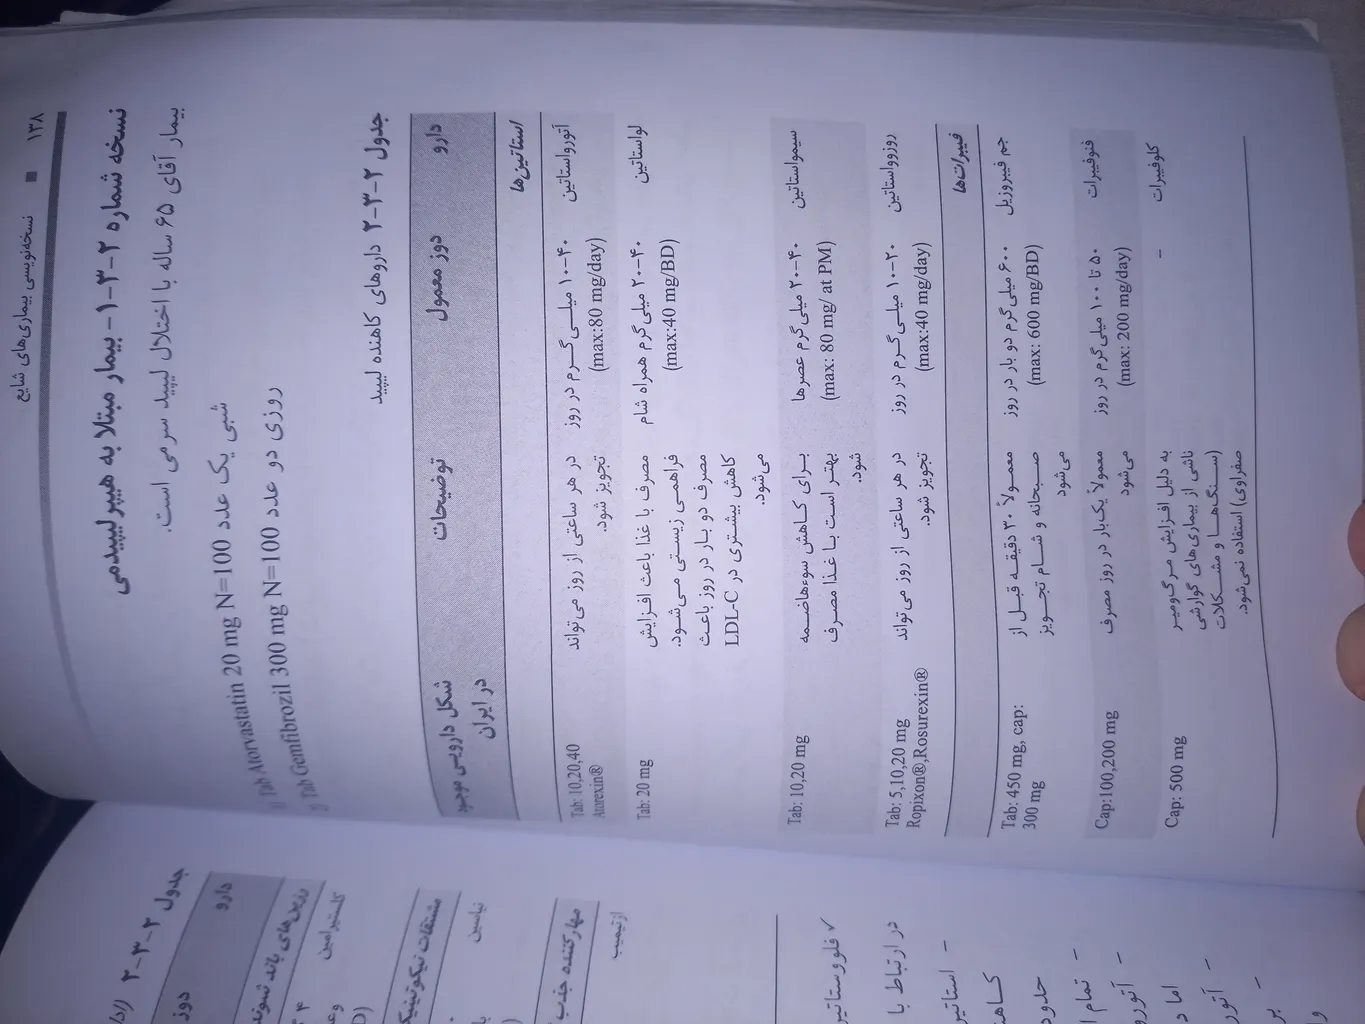 ۱۳۸ ■ نسخه‌نویسی بیماری‌های شایع
نسخه شماره ۲-۳-۱- بیمار مبتلا به هیپرلیپیدمی
بیمار آقای ۶۵ ساله با اختلال لیپید سرمی است.
Tab Atorvastatin 20 mg N=100 شبی یک عدد
Tab Gemfibrozil 300 mg N=100 روزی دو عدد
جدول ۲-۳-۲ داروهای کاهنده لیپید
دارو دوز معمول توضیحات شکل دارویی موجود
در ایران
استاتین‌ها
آتورواستاتین ۱۰-۴۰ میلی‌گرم در روز در هر ساعتی از روز می‌تواند Tab: 10,20,40
(max:80 mg/day) تجویز شود. Atorexin®
لواستاتین ۲۰-۴۰ میلی‌گرم همراه شام مصرف با غذا باعث افزایش Tab: 20 mg
(max:40 mg/BD) فراهمی زیستی می‌شود.
مصرف دو بار در روز باعث
کاهش بیشتری در LDL-C
می‌شود.
سیمواستاتین ۲۰-۴۰ میلی‌گرم عصرها برای کاهش سوءهاضمه Tab: 10,20 mg
(max: 80 mg/ at PM) بهتر است با غذا مصرف
شود.
روزوواستاتین ۱۰-۲۰ میلی‌گرم در روز در هر ساعتی از روز می‌تواند Tab: 5,10,20 mg
(max:40 mg/day) تجویز شود. Ropixon®,Rosurexin®
فیبرات‌ها
جم فیبروزیل ۶۰۰ میلی‌گرم دو بار در روز معمولاً ۳۰ دقیقه قبل از Tab: 450 mg, cap:
(max: 600 mg/BD) صبحانه و شام تجویز 300 mg
می‌شود
فنوفیبرات ۵۰ تا ۱۰۰ میلی‌گرم در روز معمولاً یک‌بار در روز مصرف Cap:100,200 mg
(max: 200 mg/day) می‌شود
کلوفیبرات - به دلیل افزایش مرگ‌ومیر Cap: 500 mg
ناشی از بیماری‌های گوارشی
(سنگ‌ها و مشکلات
صفراوی) استفاده نمی‌شود.
جدول ۲-۳-۲
دارو دوز
رزین‌های باند شونده
کلستیرامین
مشتقات نیکوتینیک
نیاسین
مهارکننده جذب
ازتیمیب
✓ فلوواستاتین
در ارتباط با
- استاتین
حدود
- تمام
- آتورو
اما
- آتور
- بر
و